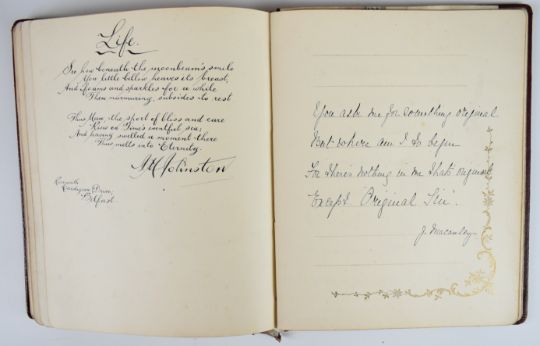 Life.
See how beneath the moonbeam's smile
Yon little billow heaves its breast,
And foams and sparkles for a while
Then murmuring, subsides to rest
Thus Man, the sport of bliss and care
Rises on Time's eventful sea;
And having swelled a moment there
Thus melts into Eternity.
Johnston
Cardigan Drive,
Belfast.
You ask me for something original
But where am I to begin
For there's nothing in me that's original
Except "Original Sin".
J. Macauley